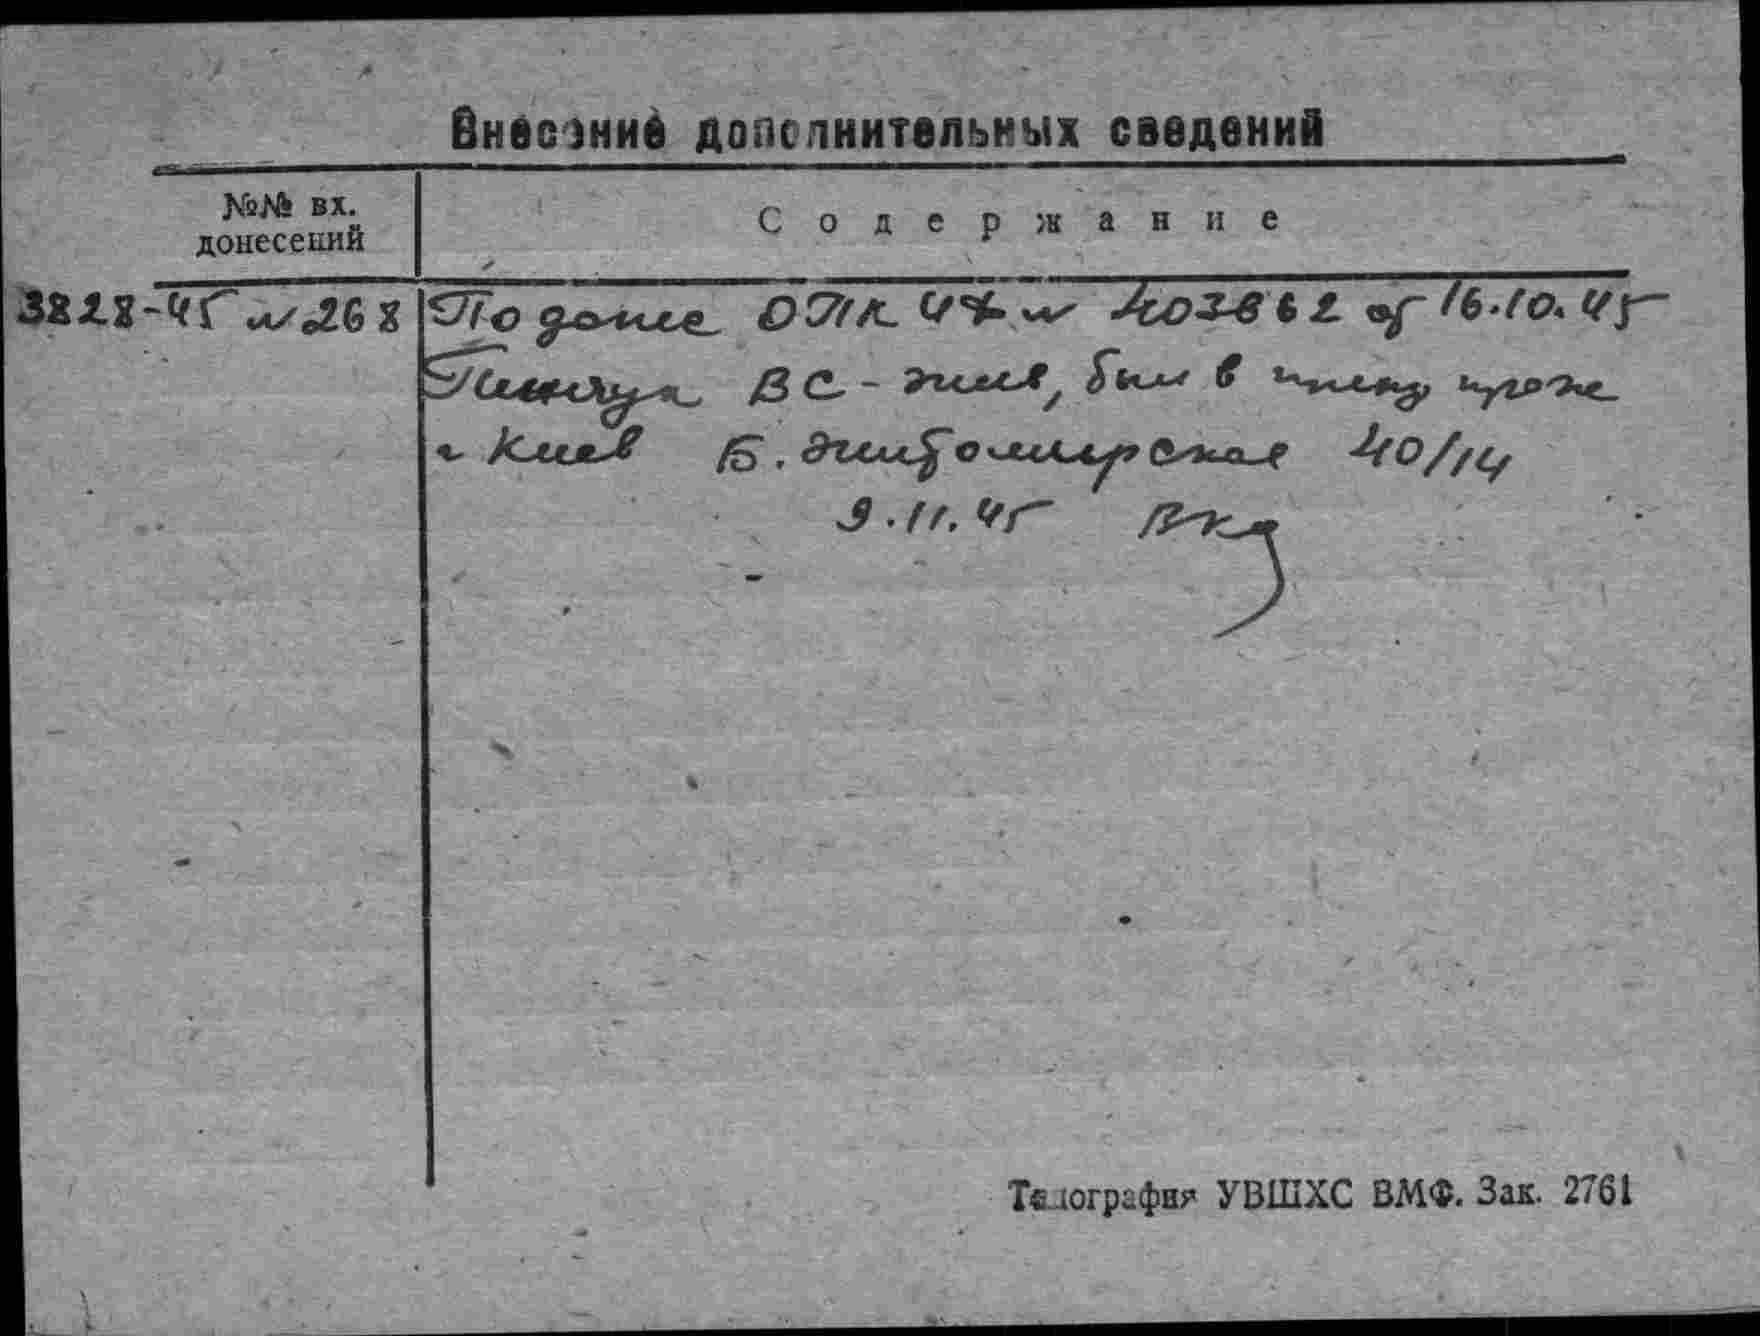 Внесение дополнительных сведений
№№ вх.
донесений
Содержание
3828-45 № 268
По доне ОПК ЧФ № 403862 от 16.10.45
Пинчук ВС - жив, был в плену прож
г Киев Б. Житомирская 40/14
9.11.45
Типография УВШХС ВМФ. Зак. 2761